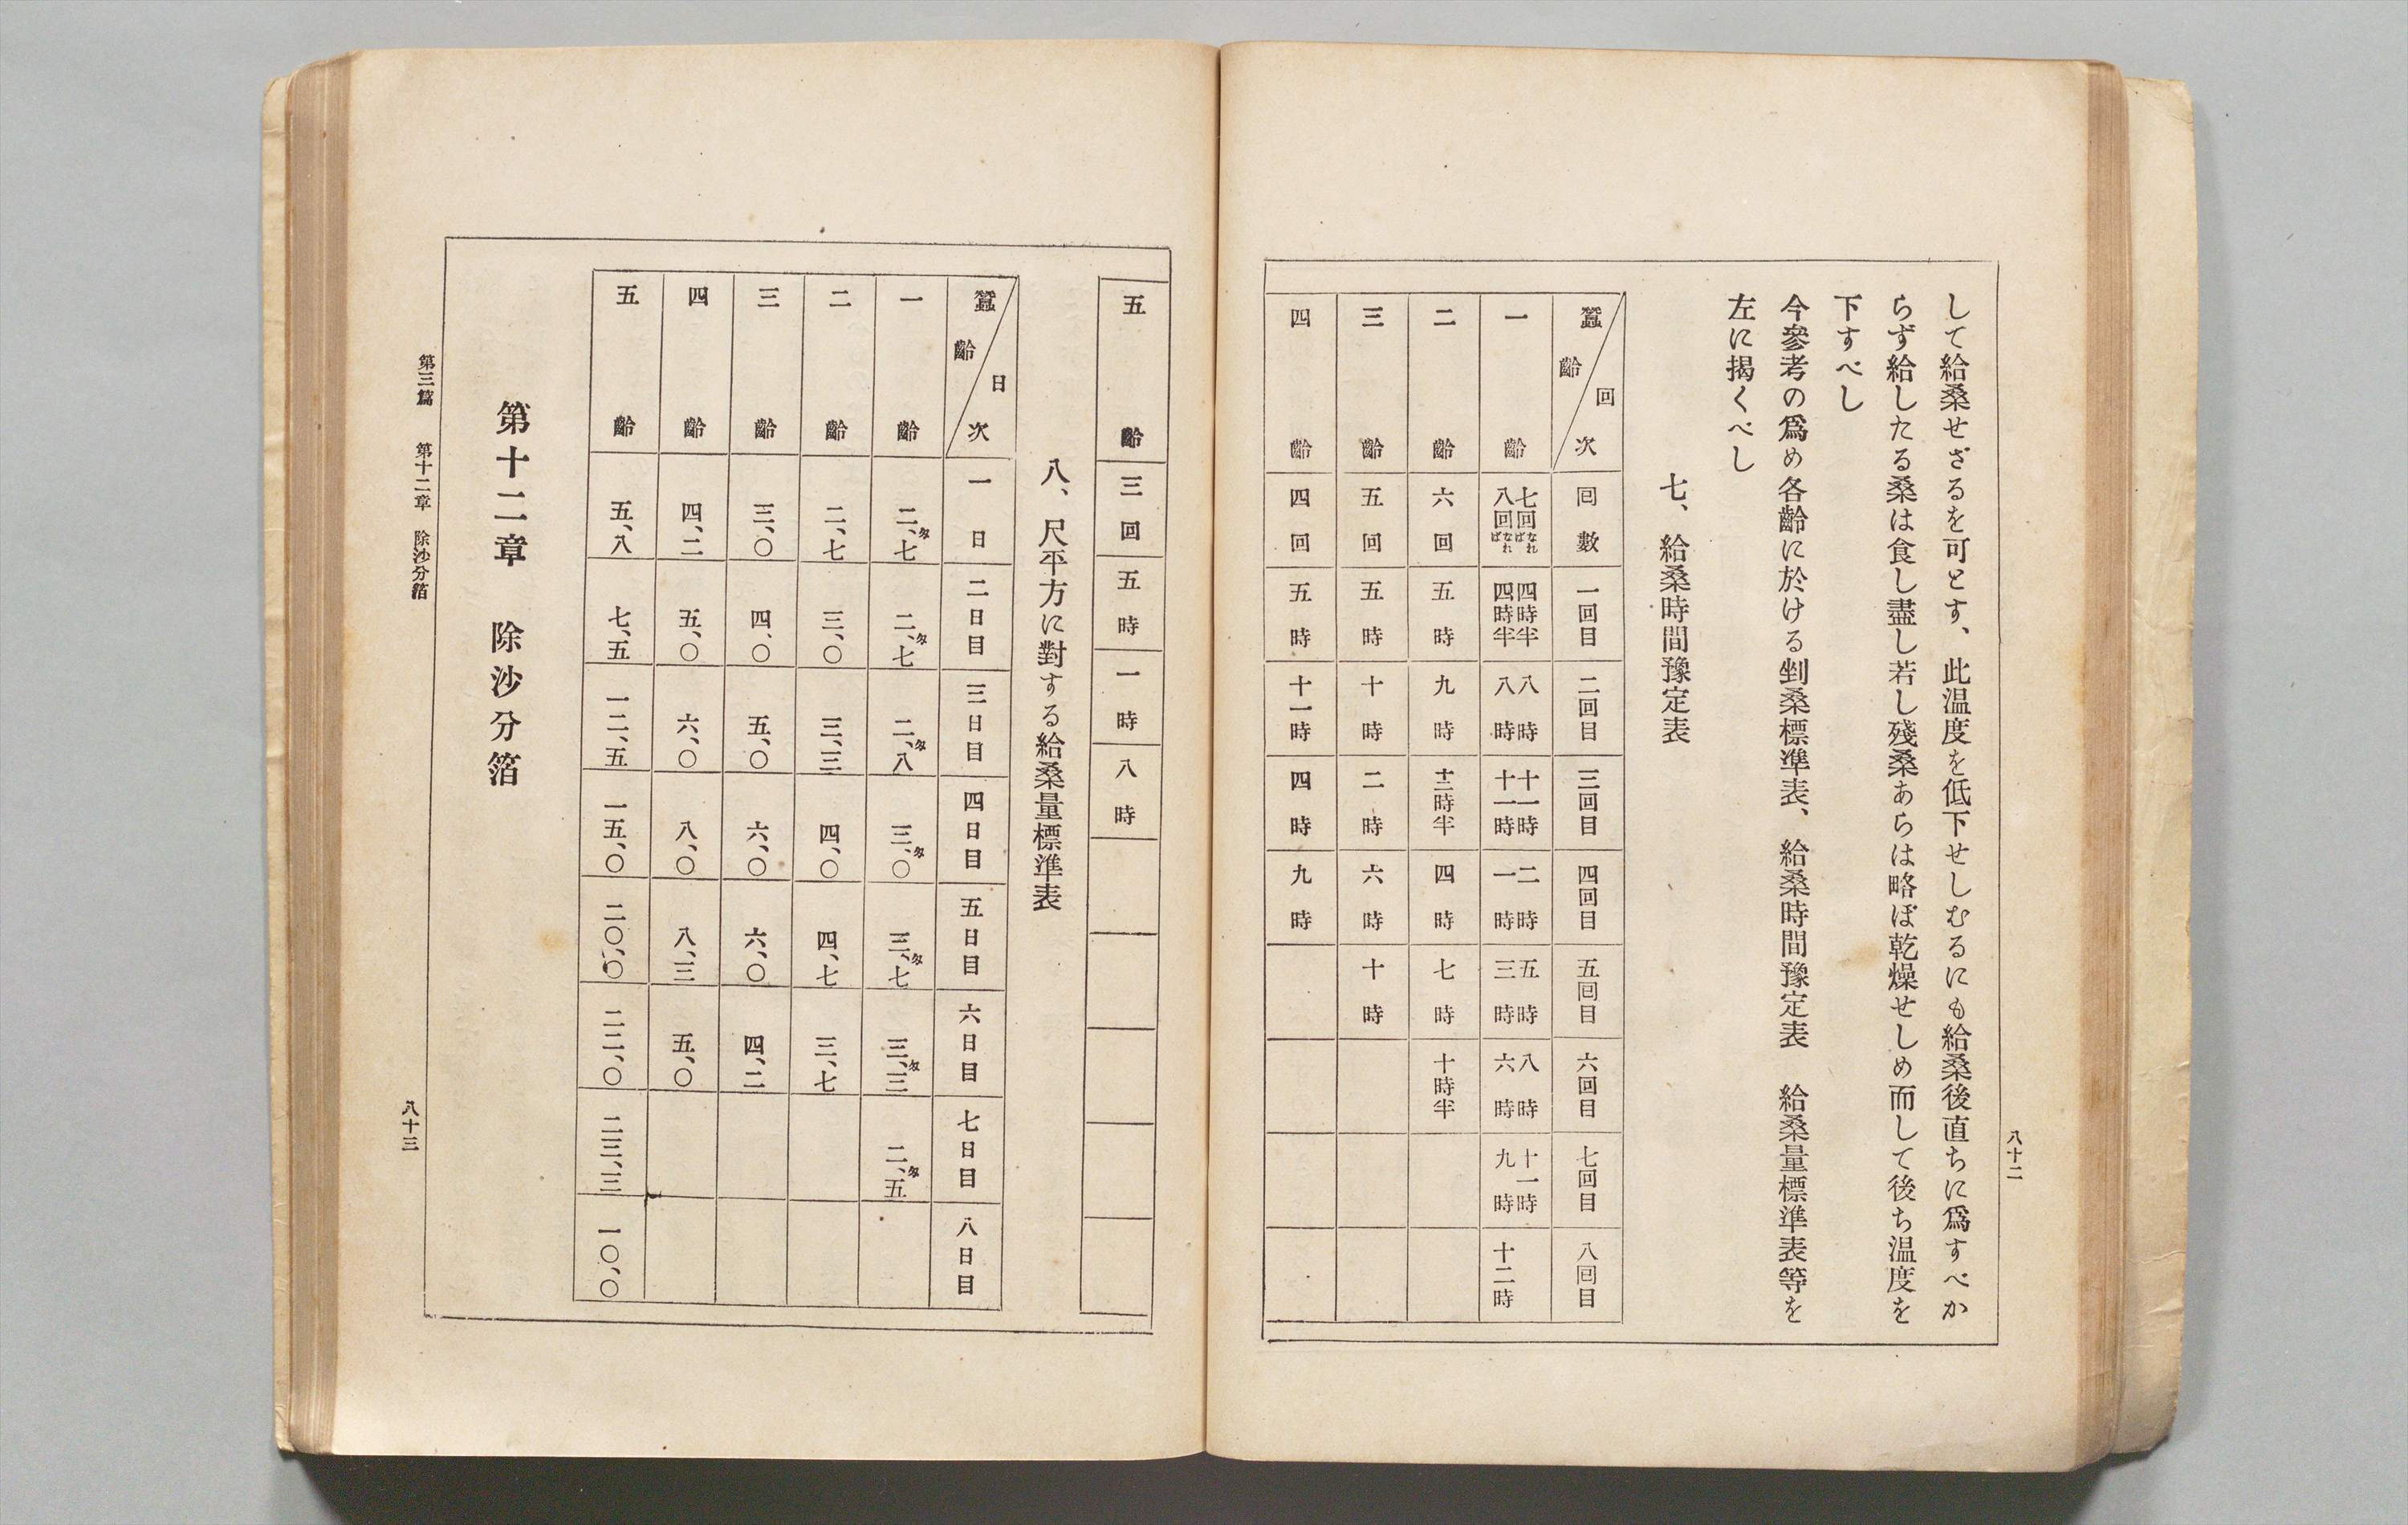 八十二
して給桑せざるを可とす、此温度を低下せしむるにも給桑後直ちに爲すべか
らず給したる桑は食し盡し若し殘桑あらは略ぼ乾燥せしめ而して後ち温度を
下すべし
今參考の爲め各齡に於ける剉桑標準表、給桑時間豫定表 給桑量標準表等を
左に揭くべし
七、給桑時間豫定表
蠶齡 回次 回數 一回目 二回目 三回目 四回目 五回目 六回目 七回目 八回目
一齡 七回なれば 四時半 八時 十一時 二時 五時 八時 十一時
八回なれば 四時半 八時 十一時 一時 三時 六時 九時 十二時
二齡 六回 五時 九時 十二時半 四時 七時 十時半
三齡 五回 五時 十時 二時 六時 十時
四齡 四回 五時 十一時 四時 九時
五齡 三回 五時 一時 八時
八、尺平方に對する給桑量標準表
蠶齡 日次 一日 二日目 三日目 四日目 五日目 六日目 七日目 八日目
一齡 二、匁七 二、匁七 二、匁八 三、匁〇 三、匁七 三、匁三 二、匁五
二齡 二、七 三、〇 三、三 四、〇 四、七 三、七
三齡 三、〇 四、〇 五、〇 六、〇 六、〇 四、二
四齡 四、二 五、〇 六、〇 八、〇 八、三 五、〇
五齡 五、八 七、五 一二、五 一五、〇 二〇、〇 二二、〇 二三、三 一〇、〇
第十二章 除沙分箔
第三篇 第十二章 除沙分箔
八十三